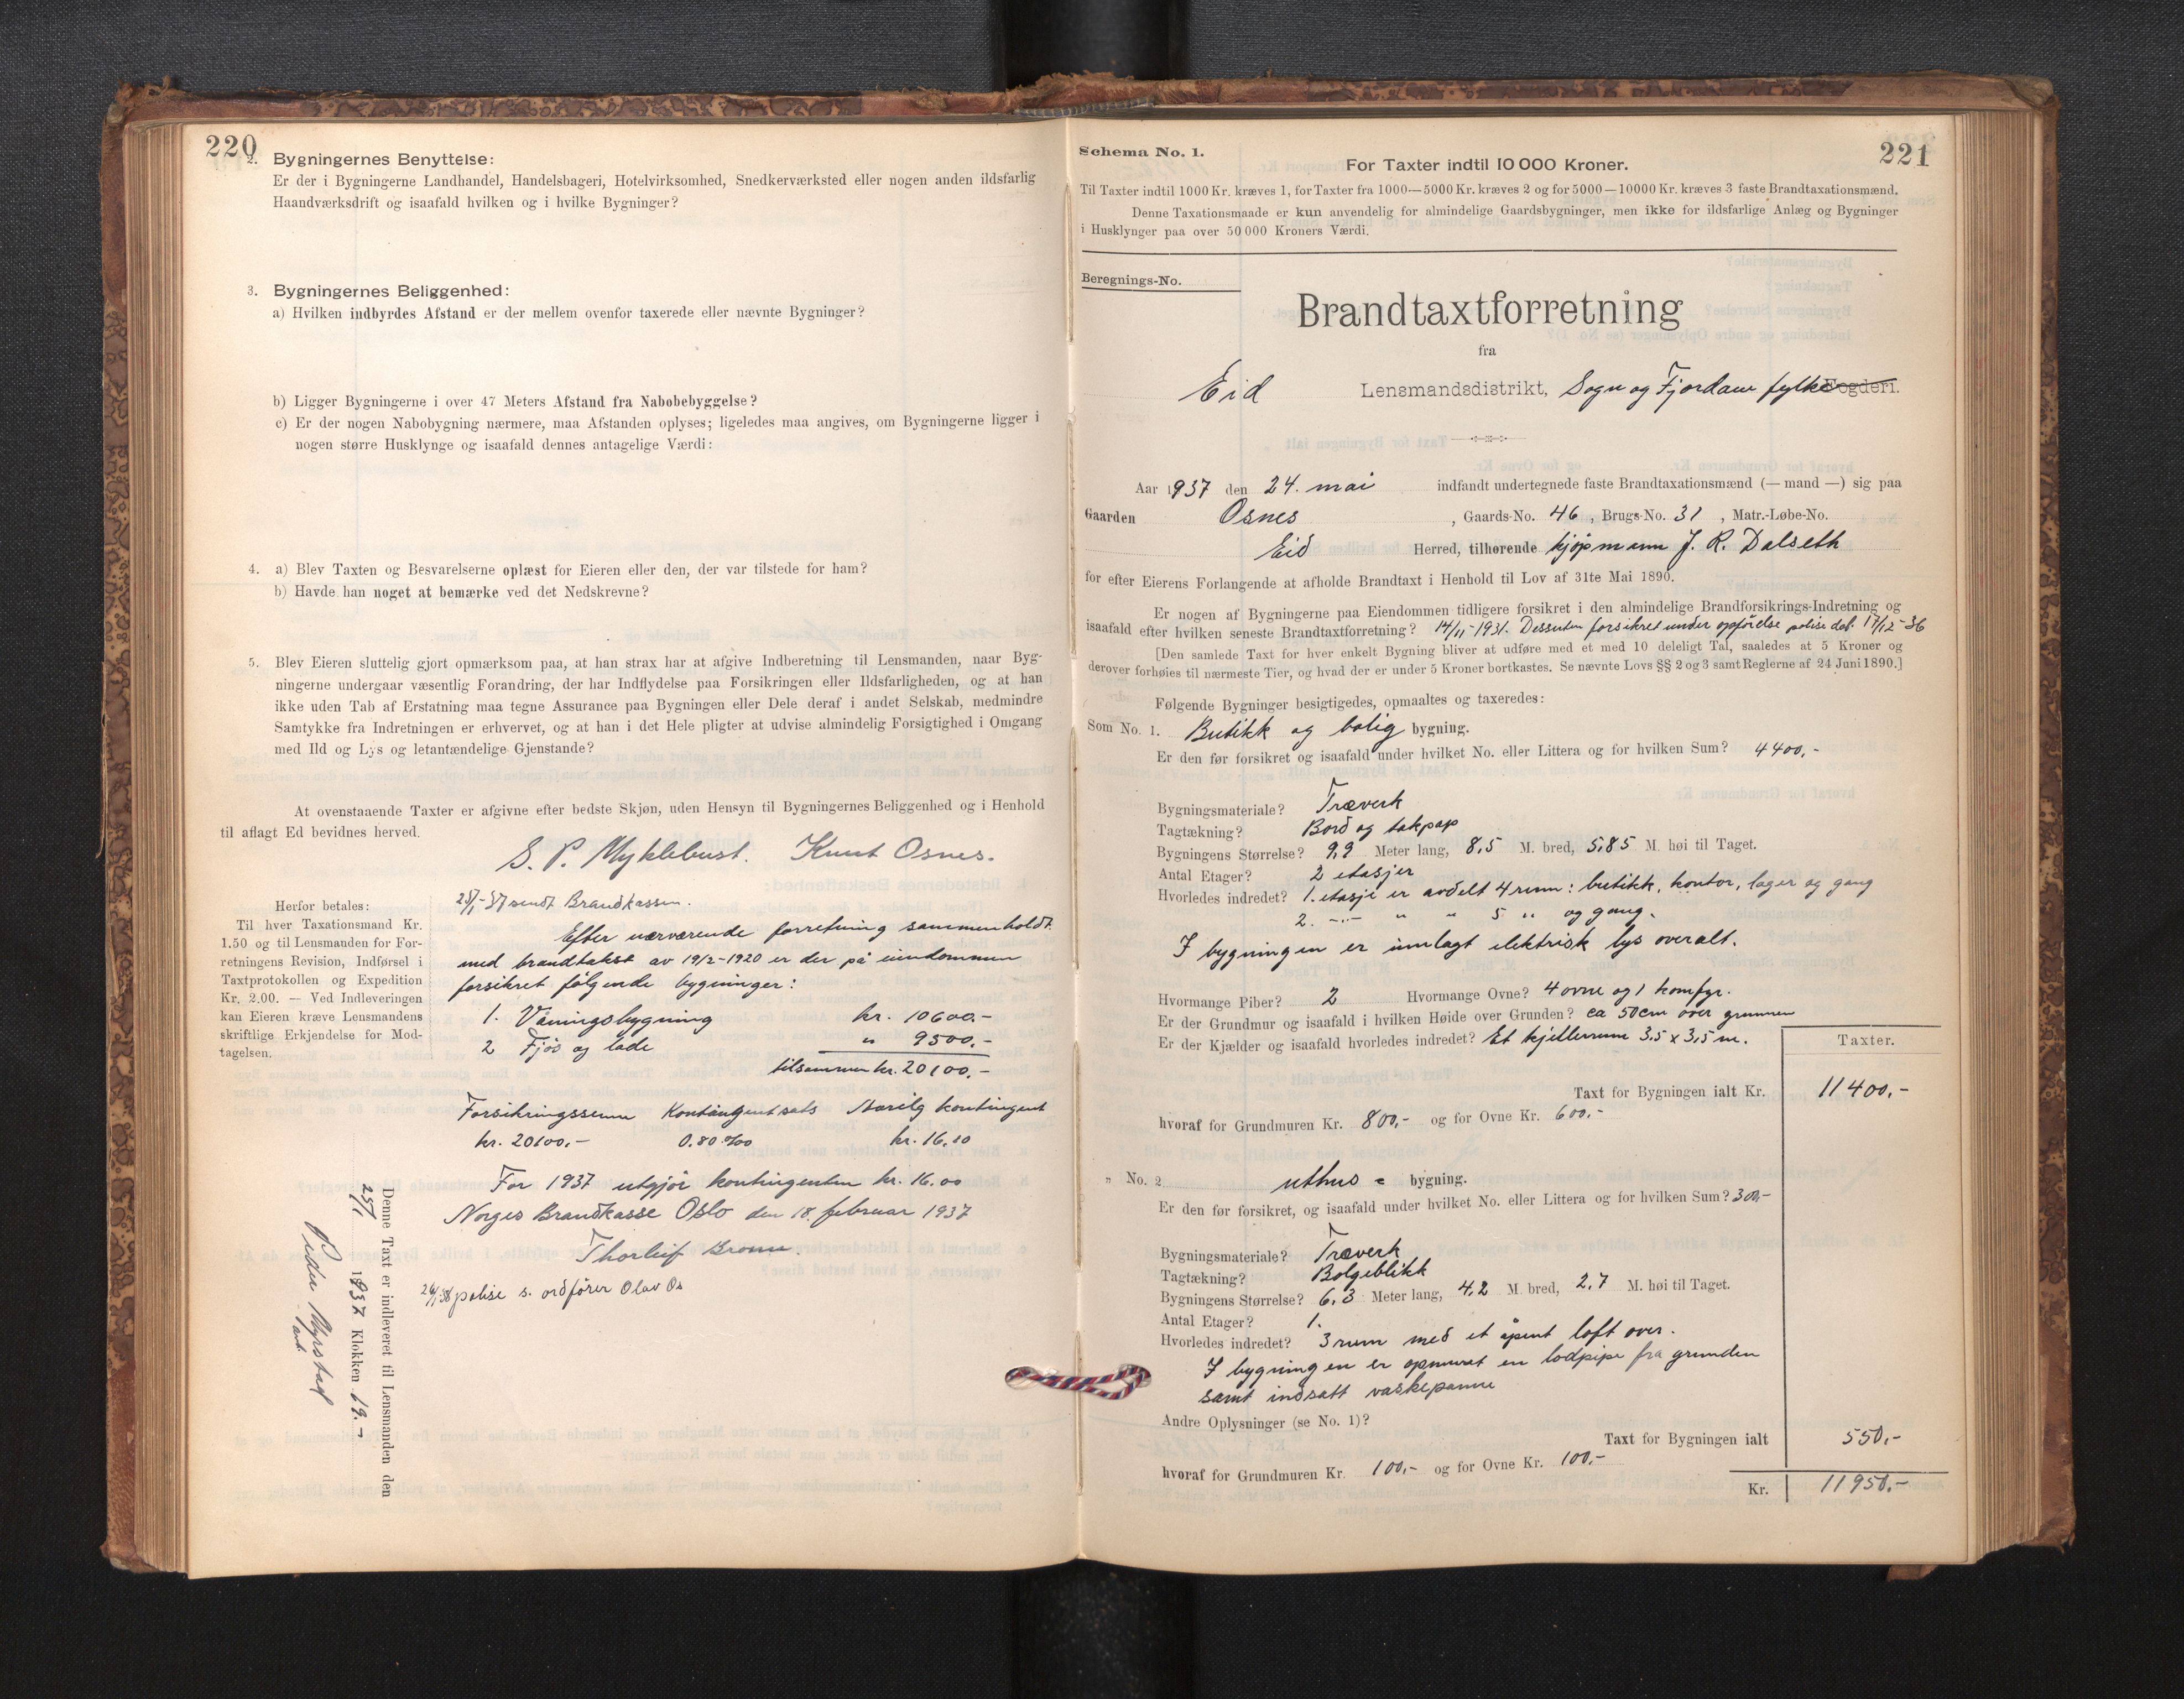 220
2. Bygningernes Benyttelse:
Er der i Bygningerne Landhandel, Handelsbageri, Hotelvirksomhed, Snedkerværksted eller nogen anden ildsfarlig
Haandværksdrift og isaafald hvilken og i hvilke Bygninger?
3. Bygningernes Beliggenhed:
a) Hvilken indbyrdes Afstand er der mellem ovenfor taxerede eller nævnte Bygninger?
b) Ligger Bygningerne i over 47 Meters Afstand fra Nabobebyggelse?
c) Er der nogen Nabobygning nærmere, maa Afstanden oplyses; ligeledes maa angives, om Bygningerne ligger i
nogen større Husklynge og isaafald dennes antagelige Værdi:
4. a) Blev Taxten og Besvarelserne oplæst for Eieren eller den, der var tilstede for ham?
b) Havde han noget at bemærke ved det Nedskrevne?
5. Blev Eieren sluttelig gjort opmærksom paa, at han strax har at afgive Indberetning til Lensmanden, naar Byg-
ningerne undergaar væsentlig Forandring, der har Indflydelse paa Forsikringen eller Ildsfarligheden, og at han
ikke uden Tab af Erstatning maa tegne Assurance paa Bygningen eller Dele deraf i andet Selskab, medmindre
Samtykke fra Indretningen er erhvervet, og at han i det Hele pligter at udvise almindelig Forsigtighed i Omgang
med Ild og Lys og letantændelige Gjenstande?
At ovenstaaende Taxter er afgivne efter bedste Skjøn, uden Hensyn til Bygningernes Beliggenhed og i Henhold
til aflagt Ed bevidnes herved.
S. P. Myklebust. Knut Osnes.
Herfor betales:
Til hver Taxationsmand Kr.
1.50 og til Lensmanden for For-
retningens Revision, Indførsel i
Taxtprotokollen og Expedition
Kr. 2.00. — Ved Indleveringen
kan Eieren kræve Lensmandens
skriftlige Erkjendelse for Mod-
tagelsen.
25/1-37 sendt Brandkassen.
Efter nærværende forretning sammenholdt
med brandtakst av 19/2-1920 er der på eiendommen
forsikret følgende bygninger:
1. Våningsbygning kr. 10600.-
2 Fjøs og lade " 9500.-
tilsammen kr. 20100.-
Forsikringssum Kontingentsats Aarlig kontingent
kr. 20100.- 0.80 ‰ kr. 16.10
For 1937 utgjør kontingenten kr. 16.00
Norges Brandkasse Oslo den 18. februar 1937
Thorleif
26/1-38 polise s. ordfører Olav Os
Denne Taxt er indleveret til Lensmanden den
25/1 1937 Klokken 19.-
Peder Myrstad
Schema No. 1.
221
For Taxter indtil 10 000 Kroner.
Til Taxter indtil 1000 Kr. kræves 1, for Taxter fra 1000—5000 Kr. kræves 2 og for 5000—10000 Kr. kræves 3 faste Brandtaxationsmænd.
Denne Taxationsmaade er kun anvendelig for almindelige Gaardsbygninger, men ikke for ildsfarlige Anlæg og Bygninger
i Husklynger paa over 50 000 Kroners Værdi.
Beregnings-No.
Brandtaxtforretning
fra
Eid Lensmandsdistrikt, Sogn og Fjordane fylke Fogderi.
Aar 1937 den 24. mai indfandt undertegnede faste Brandtaxationsmænd (— mand —) sig paa
Gaarden Osnes, Gaards-No. 46, Brugs-No. 31, Matr.-Løbe-No.
Eid Herred, tilhørende kjøpmann J. R. Dalseth
for efter Eierens Forlangende at afholde Brandtaxt i Henhold til Lov af 31te Mai 1890.
Er nogen af Bygningerne paa Eiendommen tidligere forsikret i den almindelige Brandforsikrings-Indretning og
isaafald efter hvilken seneste Brandtaxtforretning? 14/11-1931. Dessuten forsikret under opførelse polise dat. 17/12-36
[Den samlede Taxt for hver enkelt Bygning bliver at udføre med et med 10 deleligt Tal, saaledes at 5 Kroner og
derover forhøies til nærmeste Tier, og hvad der er under 5 Kroner bortkastes. Se nævnte Lovs §§ 2 og 3 samt Reglerne af 24 Juni 1890.]
Følgende Bygninger besigtigedes, opmaaltes og taxeredes:
Som No. 1. Butikk og bolig bygning.
Er den før forsikret og isaafald under hvilket No. eller Littera og for hvilken Sum? 4400,-
Bygningsmateriale? Træverk
Tagtækning? Bord og takpap
Bygningens Størrelse? 9,9 Meter lang, 8,5 M. bred, 5,85 M. høi til Taget.
Antal Etager? 2 etasjer
Hvorledes indredet? 1. etasje er avdelt 4 rum: butikk, kontor, lager og gang
2. -"- " " 5 " og gang.
I bygningen er innlagt elektrisk lys overalt.
Hvormange Piber? 2 Hvormange Ovne? 4 ovne og 1 komfyr.
Er der Grundmur og isaafald i hvilken Høide over Grunden? ca 50cm over grunnen
Er der Kjælder og isaafald hvorledes indredet? Et kjellerrum 3,5 x 3,5 m.
Taxter.
Taxt for Bygningen ialt Kr. 11400,-
hvoraf for Grundmuren Kr. 800,- og for Ovne Kr. 600.-
" No. 2 uthus = bygning.
Er den før forsikret, og isaafald under hvilket No. eller Littera og for hvilken Sum? 300,-
Bygningsmateriale? Træverk
Tagtækning? Bølgeblikk
Bygningens Størrelse? 6,3 Meter lang, 4,2 M. bred, 2,7 M. høi til Taget.
Antal Etager? 1.
Hvorledes indredet? 3 rum med et åpent loft over.
I bygningen er opmuret en lodpipe fra grunden
samt indsatt vaskepanne
Andre Oplysninger (se No. 1)?
Taxt for Bygningen ialt 550,-
hvoraf for Grundmuren Kr. 100,- og for Ovne Kr. 100,-
Kr. 11950,-